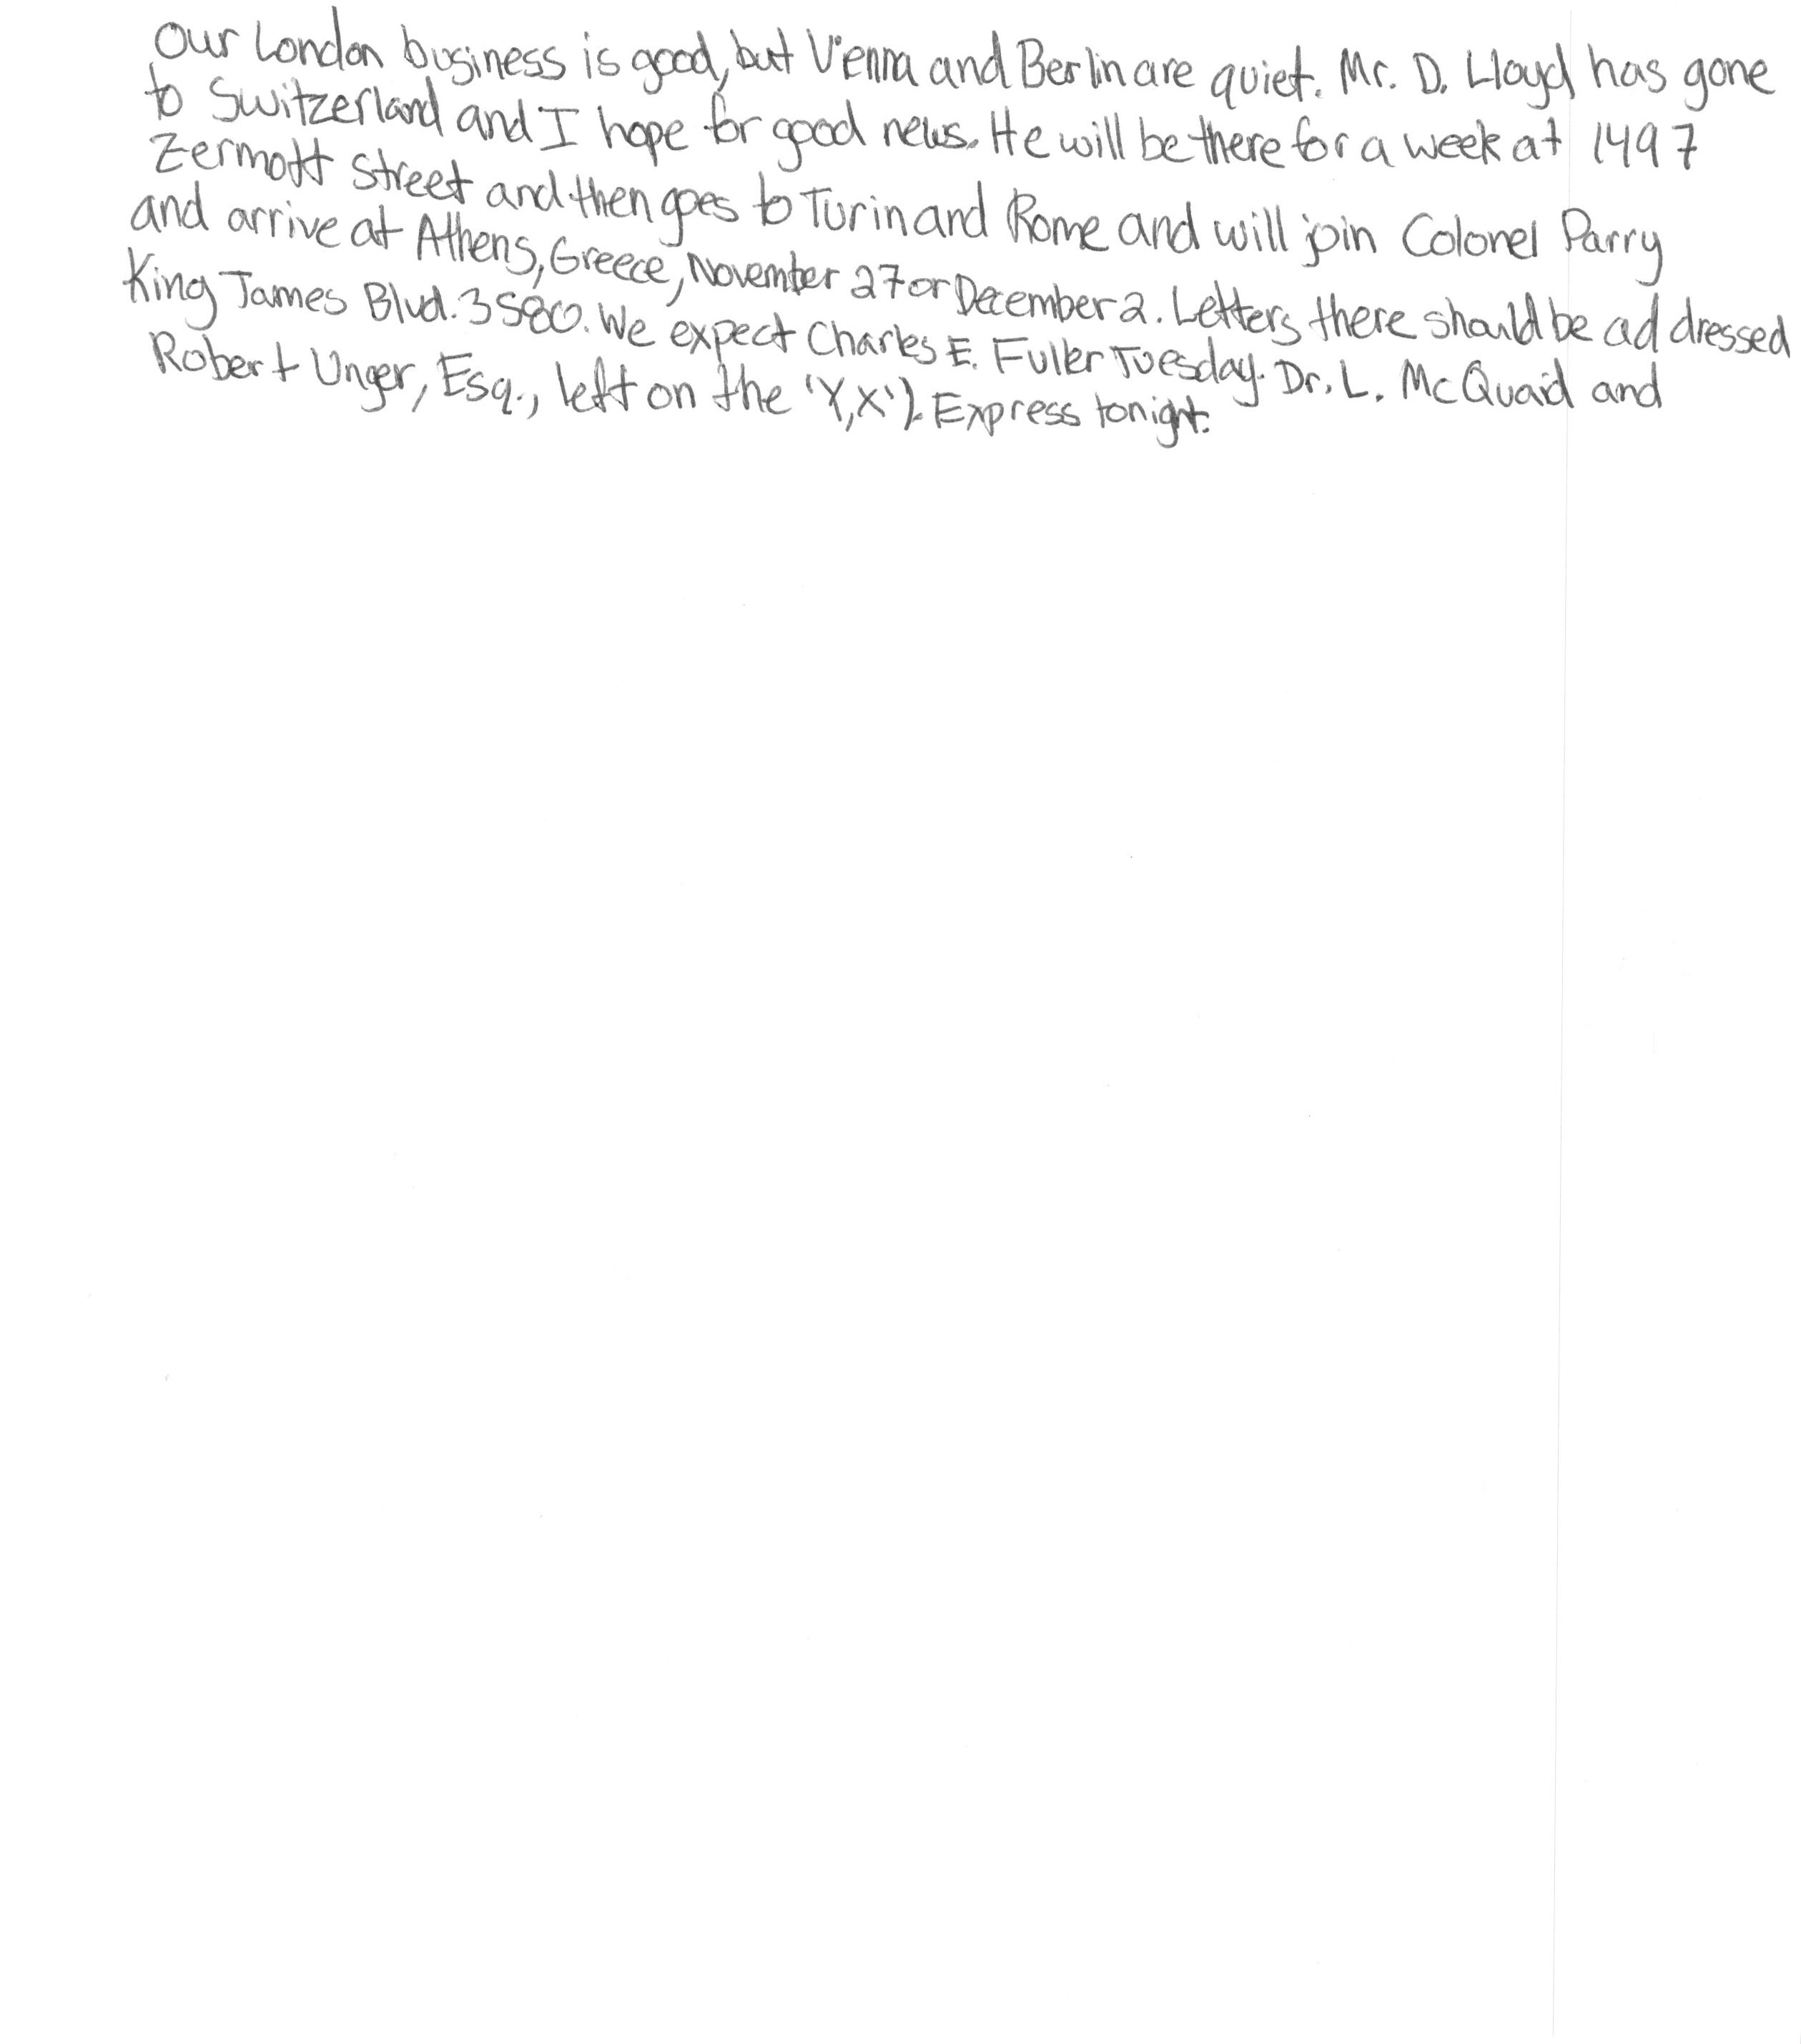 Our London business is good, but Vienna and Berlin are quiet. Mr. D. Lloyd has gone
to Switzerland and I hope for good news. He will be there for a week at 1497
Zermott Street and then goes to Turin and Rome and will join Colonel Parry
and arrive at Athens, Greece, November 27 or December 2. Letters there should be addressed
King James Blvd. 3580. We expect Charles E. Fuller Tuesday. Dr. L. McQuaid and
Robert Unger, Esq., left on the 'Y,X'). Express tonight.